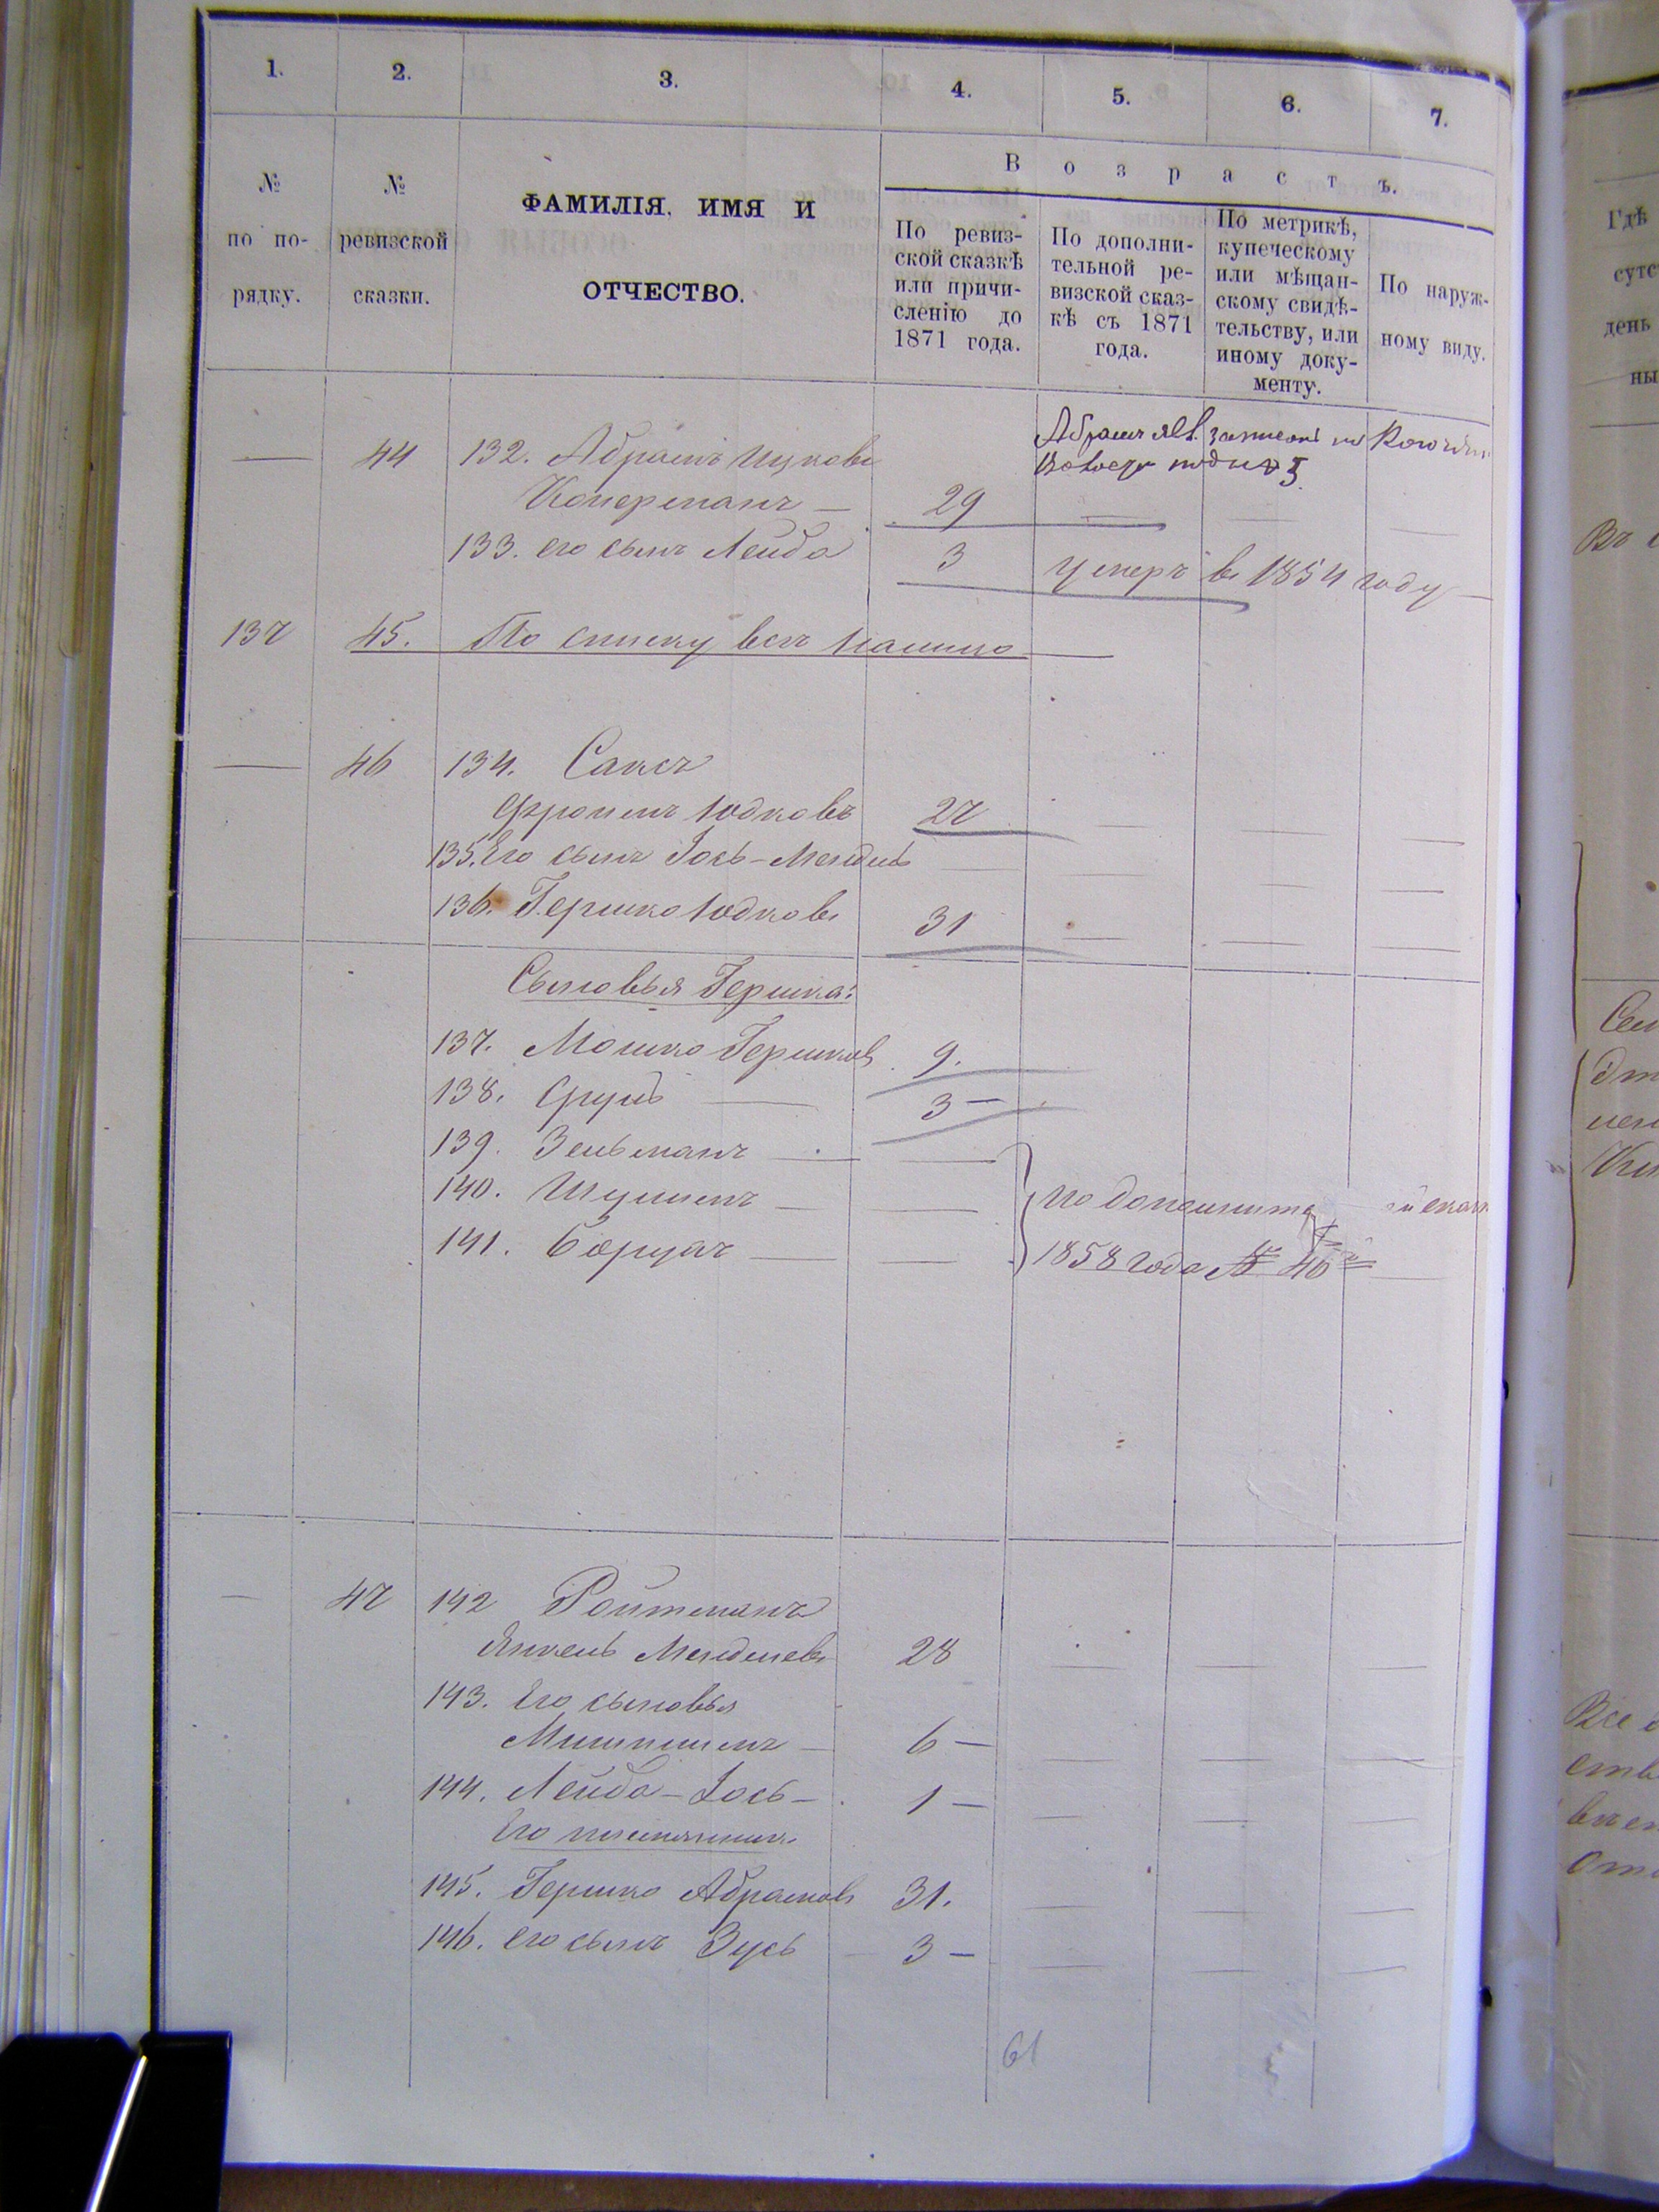 1. 2. 3. 4. 5. 6. 7.
№ по по-рядку.
№ ревизской сказки.
ФАМИЛІЯ, ИМЯ И
ОТЧЕСТВО.
В о з р а с т ъ.
По ревиз-
ской сказкѣ
или причи-
сленію до
1871 года.
По дополни-
тельной ре-
визской сказ-
кѣ съ 1871
года.
По метрикѣ,
купеческому
или мѣщан-
скому свидѣ-
тельству, или
иному доку-
менту.
По наруж-
ному виду.
— 44 132. Абрамъ Ицковъ
29
133. его сынъ Лейба 3 умеръ въ 1854 году
137 45. По списку всѣ налицо
— 46 134. Саксъ
Фроимъ Юдковъ 27
135. Его сынъ Іось-Мендель
136. Гершко Юдковъ 31
Сыновья Гершка:
137. Мошко Гершковъ 9.
138. Сруль — 3 —
139. Зельманъ —
140. Шулимъ —
141. Борухъ —
1858 года № 46й
— 47 142 Ройтманъ
Янкель Менделевъ 28
143. Его сыновья
6 —
144. Лейба-Іось — 1 —
Его племянникъ
145. Гершко Абрамовъ 31.
146. его сынъ Зусь 3 —
61
Гдѣ
день